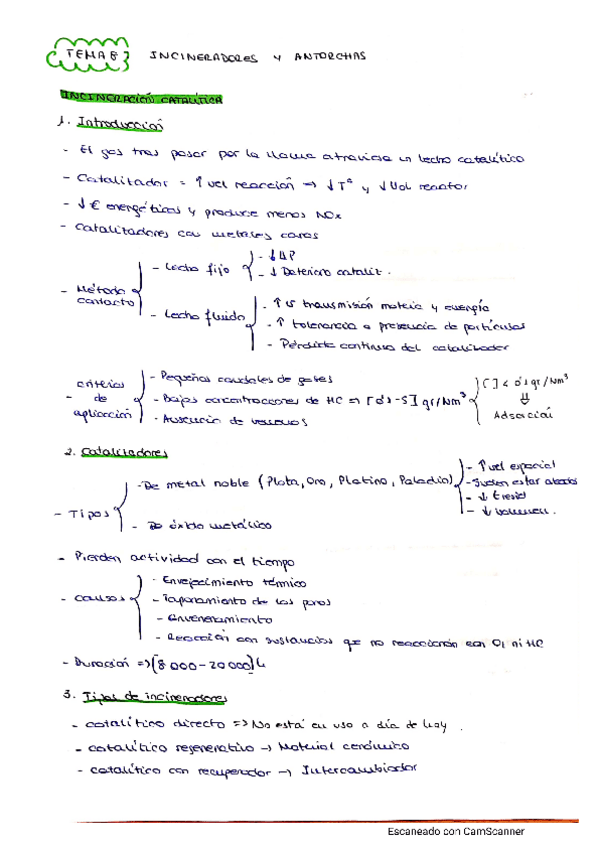 TEMA 8 INCINERADORES Y ANTORCHAS
INCINERACIÓN CATALÍTICA
1. Introducción
- El gas tras pasar por la llama atraviesa un lecho catalítico
- Catalizador = ↑ vel reacción → ↓ Tª y ↓ Vol reactor
- ↓ € energéticos y produce menos NOx
- Catalizadores con metales caros
- Método contacto
- Lecho fijo
- ↓ ΔP
- ↓ Deterioro cataliz.
- Lecho fluido
- ↑ transmisión materia y energía
- ↑ tolerancia a presencia de partículas
- Pérdida continua del catalizador
- criterios de aplicación
- Pequeños caudales de gases
- Bajas concentraciones de HC ⇒ [0's-5] gr/Nm³
- Ausencia de venenos
[ ] < 0's gr/Nm³
⇓
Adsorción
2. Catalizadores
- Tipos
- De metal noble (Plata, Oro, Platino, Paladio)
- ↑ vel espacial
- Suelen estar
- ↓ t resid
- ↓ volumen.
- De óxido metálico
- Pierden actividad con el tiempo
- causas
- Envejecimiento térmico
- Taponamiento de los poros
- Envenenamiento
- Reacción con sustancias que no reaccionan con O₂ ni HC
- Duración ⇒ [8 000 - 20 000] h
3. Tipos de incineradores
- catalítico directo ⇒ No está en uso a día de hoy.
- catalítico regenerativo → Material cerámico
- catalítico con recuperador → Intercambiador
Escaneado con CamScanner